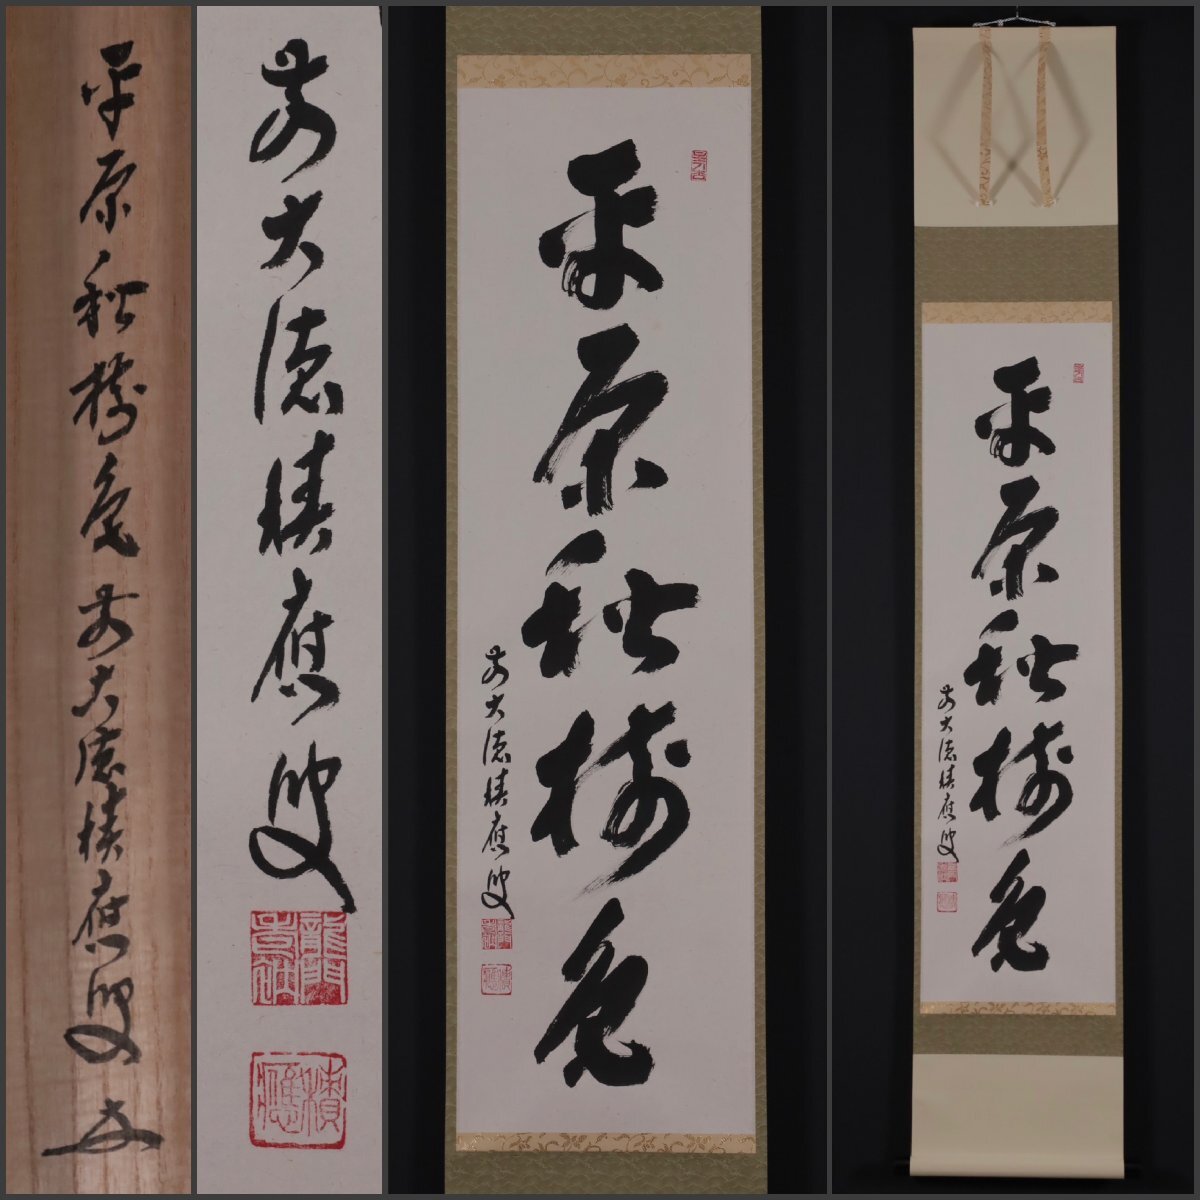 平原秋樹色 前大徳積應叟 書
前大徳積應叟
龍門
積應
平原秋樹色
前大徳積應叟
平原秋樹色
前大徳積應叟